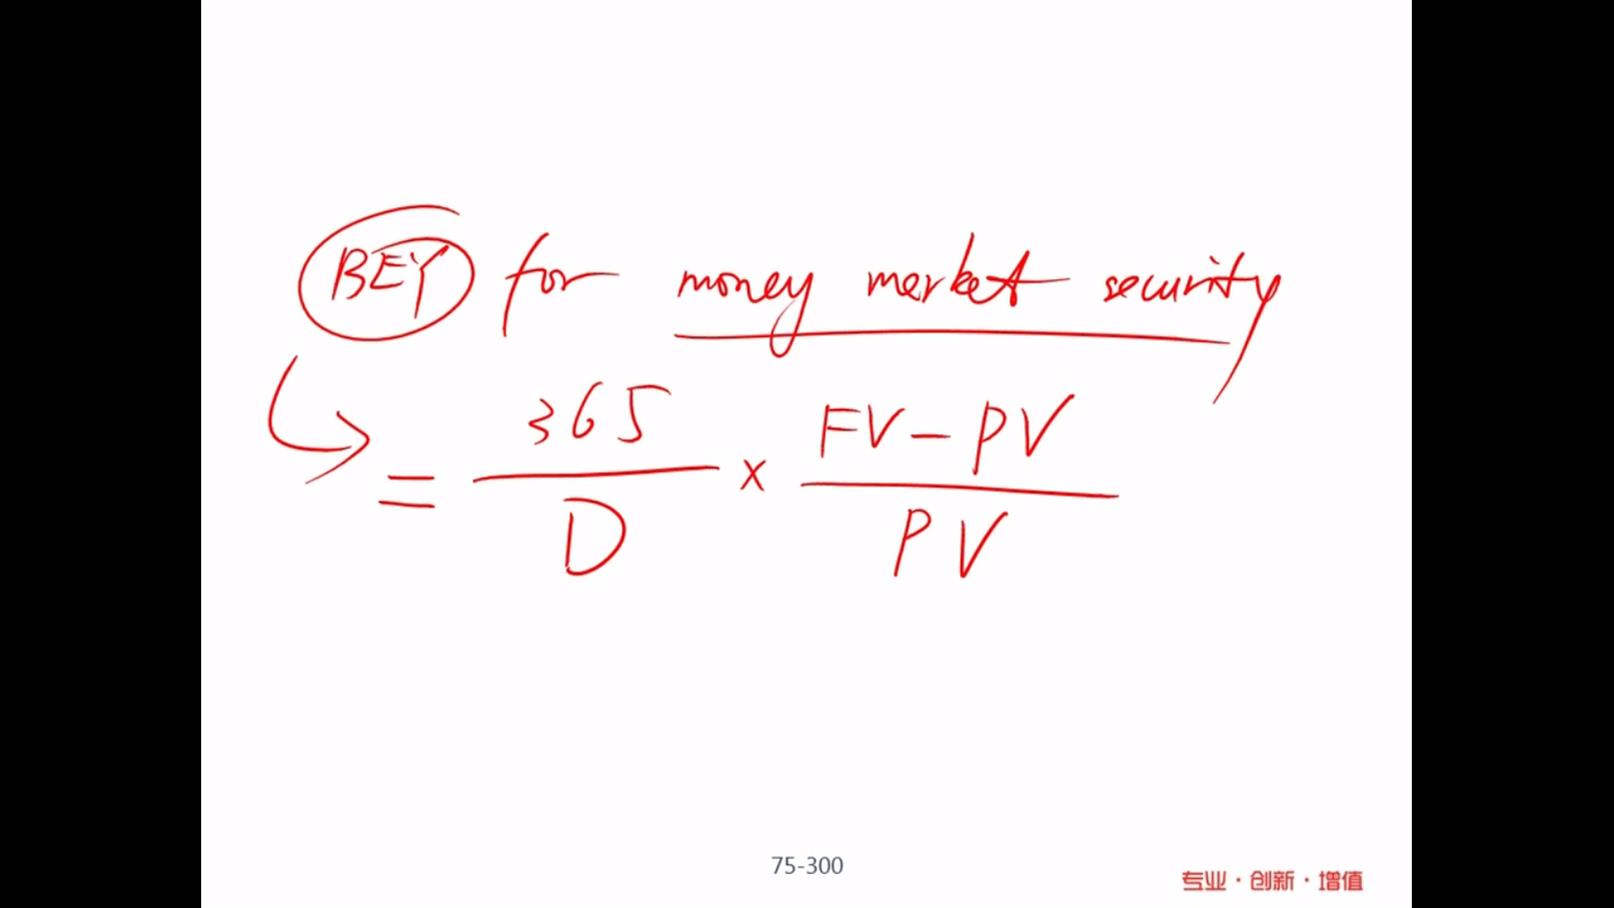 BEY for money market security
= 365 / D × FV - PV / PV
75-300
专业·创新·增值